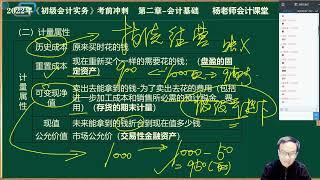 2022年《初级会计实务》考前冲刺 第二章-会计基础 杨老师会计课堂
(二)计量属性
计量属性
历史成本 原来买时花的钱
重置成本 现在重新买个一样的需要花的钱;(盘盈的固定资产)
可变现净值 卖出去能拿到的钱-为了卖出去花的费用(包括进一步加工成本和销售所必需的预计税金、费用)(存货的期末计量)
现值 未来能拿到的钱折合到现在值多少钱
公允价值 市场公允价(交易性金融资产)
持续经营
1000
1000-50
=950